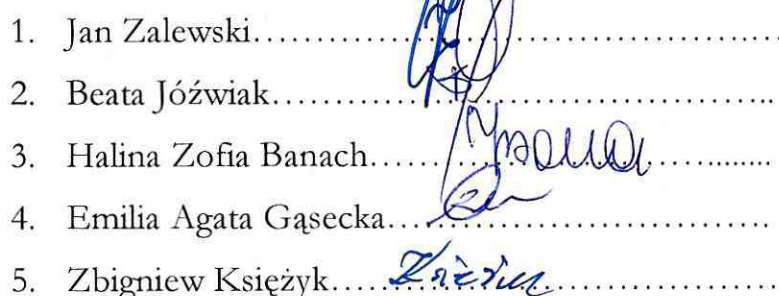 1. Jan Zalewski..............................................
2. Beata Jóźwiak............................................
3. Halina Zofia Banach....................................
4. Emilia Agata Gąsecka.................................
5. Zbigniew Księżyk........................................